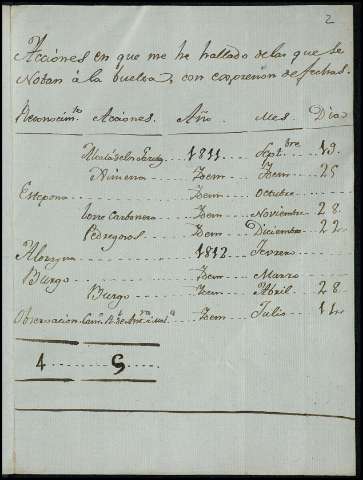 2
Acciónes en que me he hallado delas que se
Notan á la buelta, con expresion de fechas.
Reconocim.tos Acciónes. Año. Mes. Dia
Alcalá de los 1811 Sept.bre 19.
Ximena Idem Idem 25
Estepona Idem Octubre
Torre Carbonera Idem Noviembre 28.
Pedregosos. Idem Diciembre 22
Alozayna 1812 Fevrero
Burgo Idem Marzo
Burgo Idem Abril 28.
Observacion Idem Julio 14
4 5